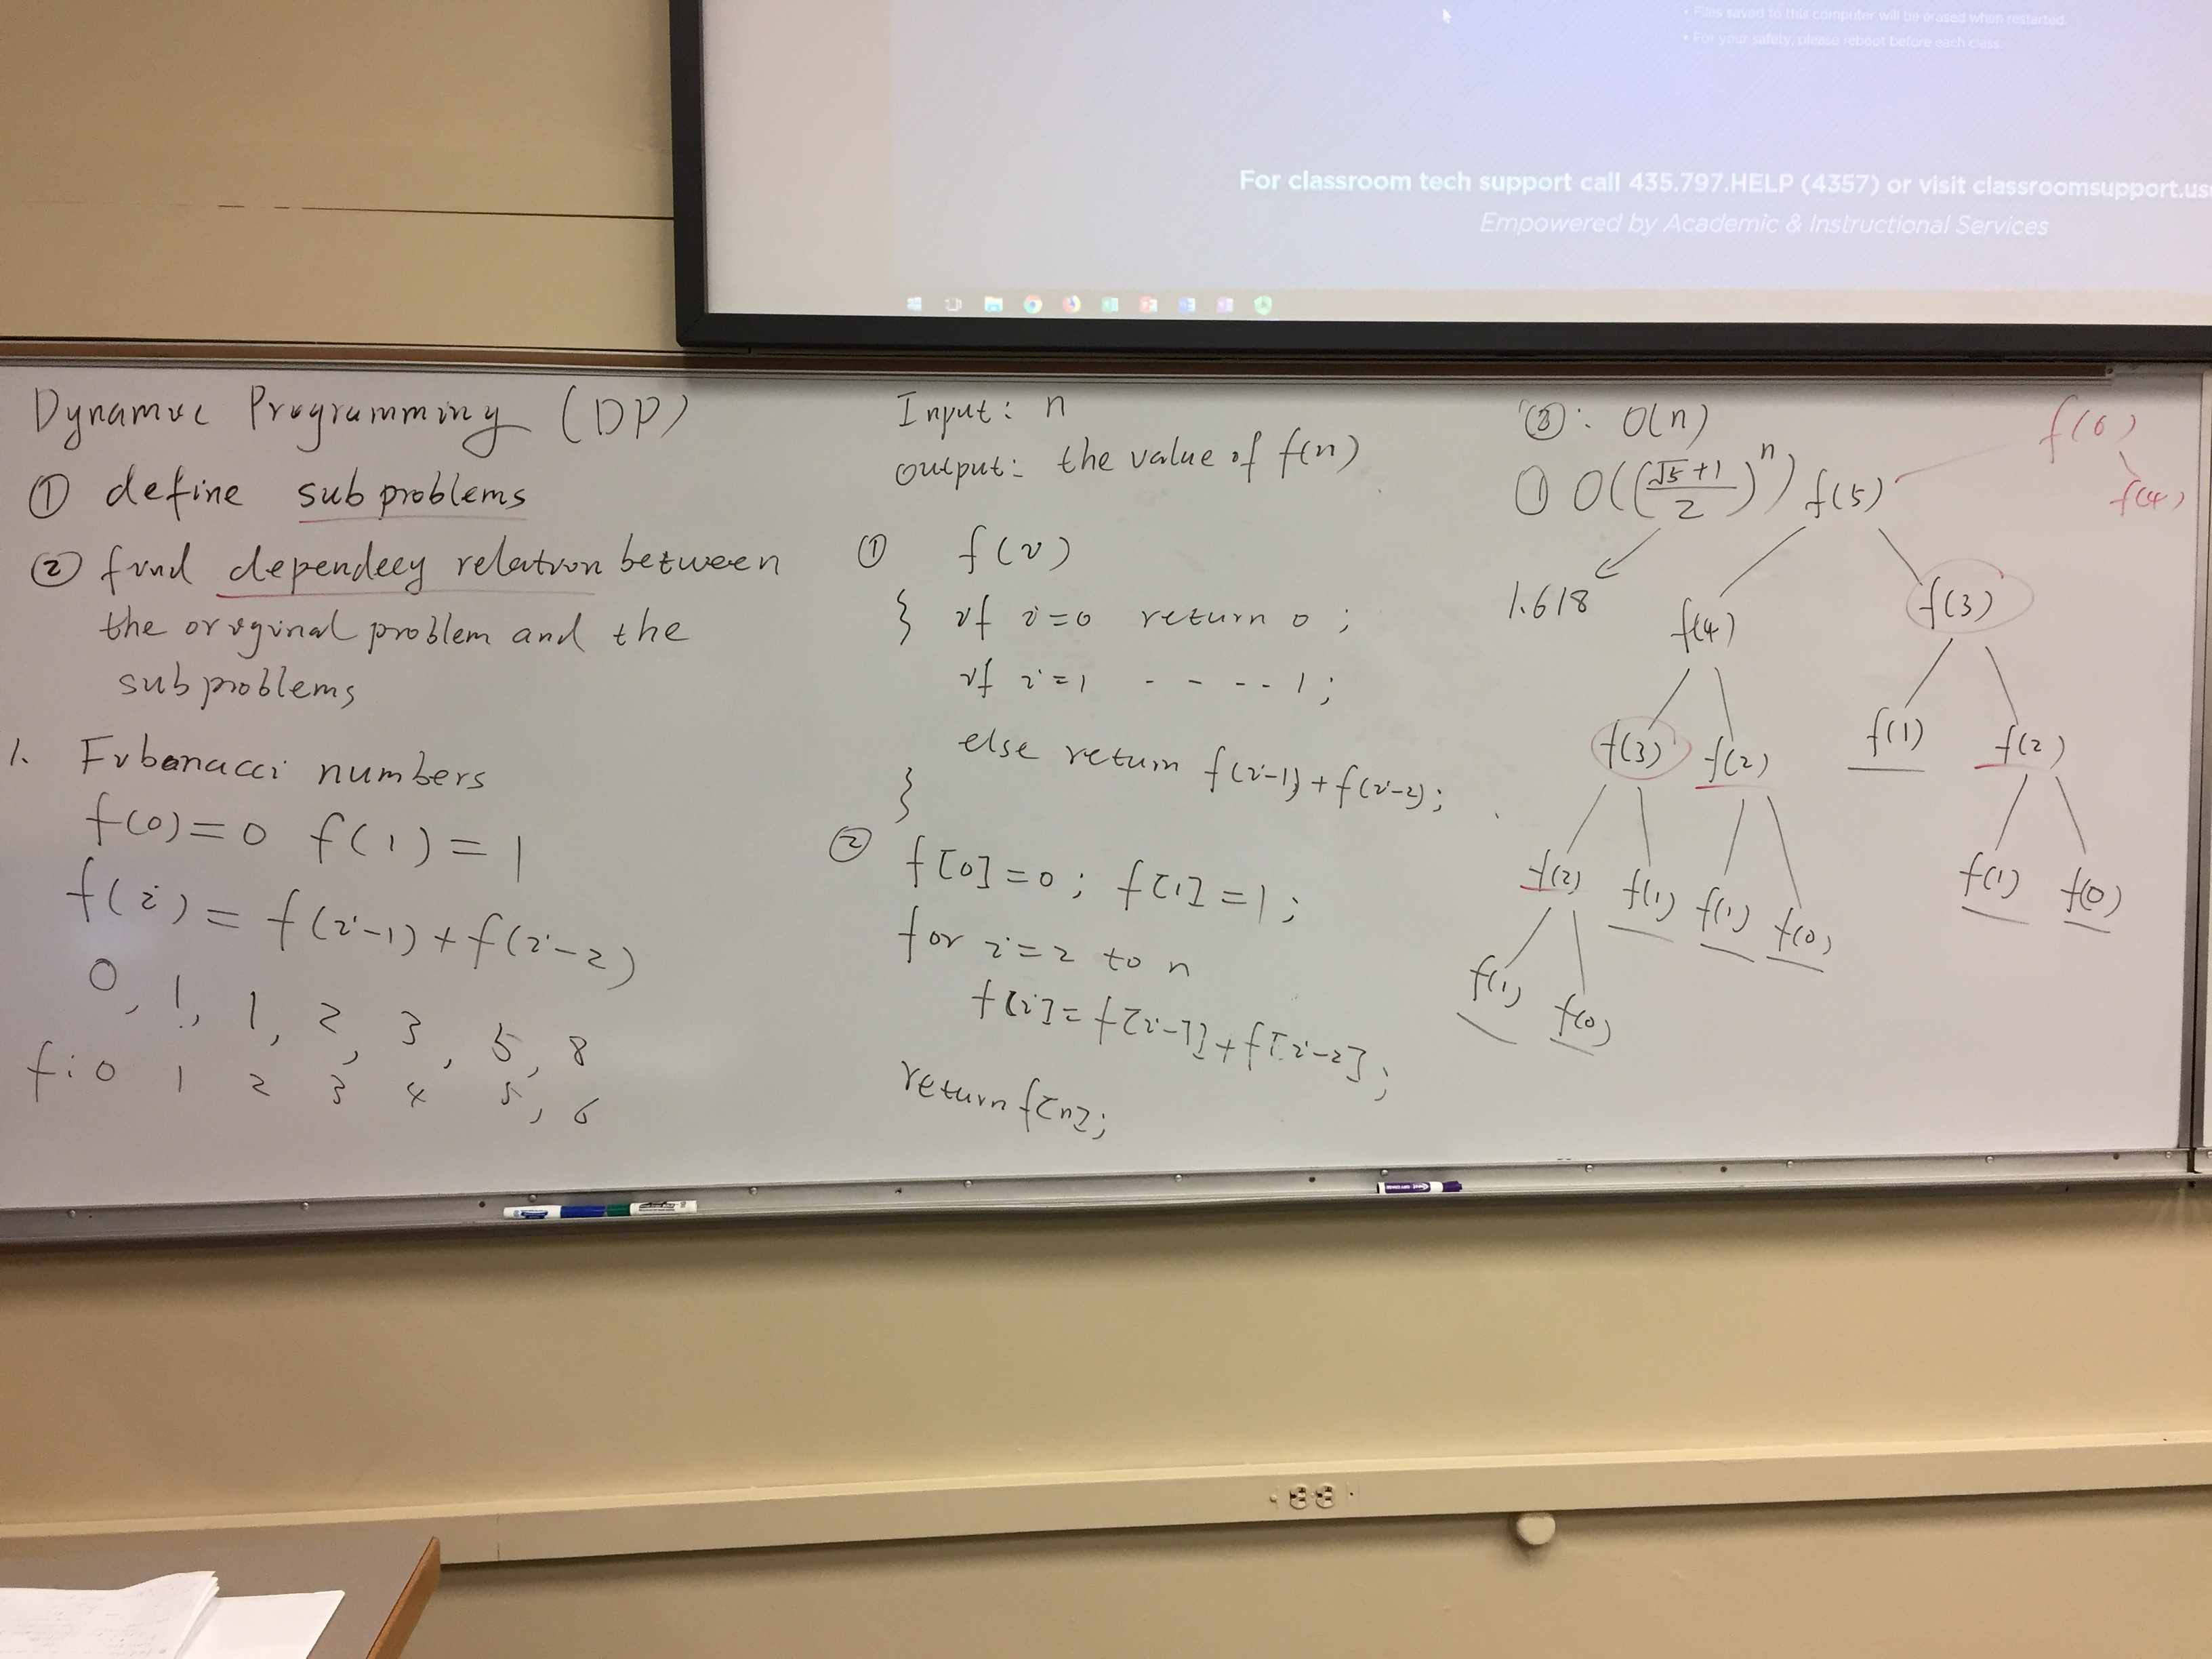 • Files saved to this computer will be erased when restarted.
• For your safety, please reboot before each class.
For classroom tech support call 435.797.HELP (4357) or visit classroomsupport.us
Empowered by Academic & Instructional Services
Dynamic Programming (DP)
① define subproblems
② find dependecy relation between
the original problem and the
subproblems
1. Fibonacci numbers
f(0)=0 f(1)=1
f(i)=f(i-1)+f(i-2)
0, 1, 1, 2, 3, 5, 8
f: 0 1 2 3 4 5, 6
Input: n
output: the value of f(n)
① f(i)
{ if i=0 return 0;
if i=1 - - - - 1;
else return f(i-1)+f(i-2);
}
② f[0]=0; f[1]=1;
for i=2 to n
f[i]=f[i-1]+f[i-2];
return f[n];
: O(n)
① O(((√5+1)/2)^n)
1.618
f(6)
f(5) f(4)
f(4) f(3)
f(3) f(2) f(1) f(2)
f(2) f(1) f(1) f(0) f(1) f(0)
f(1) f(0)